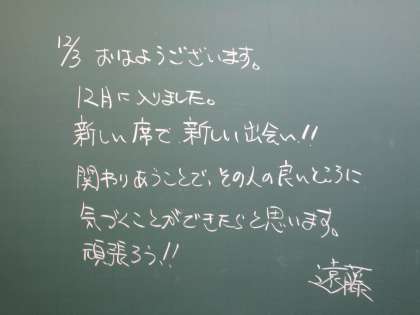 12/3 おはようございます。
12月に入りました。
新しい席で新しい出会い!!
関わりあうことで、その人の良いところに
気づくことができたらと思います。
頑張ろう!!
遠藤